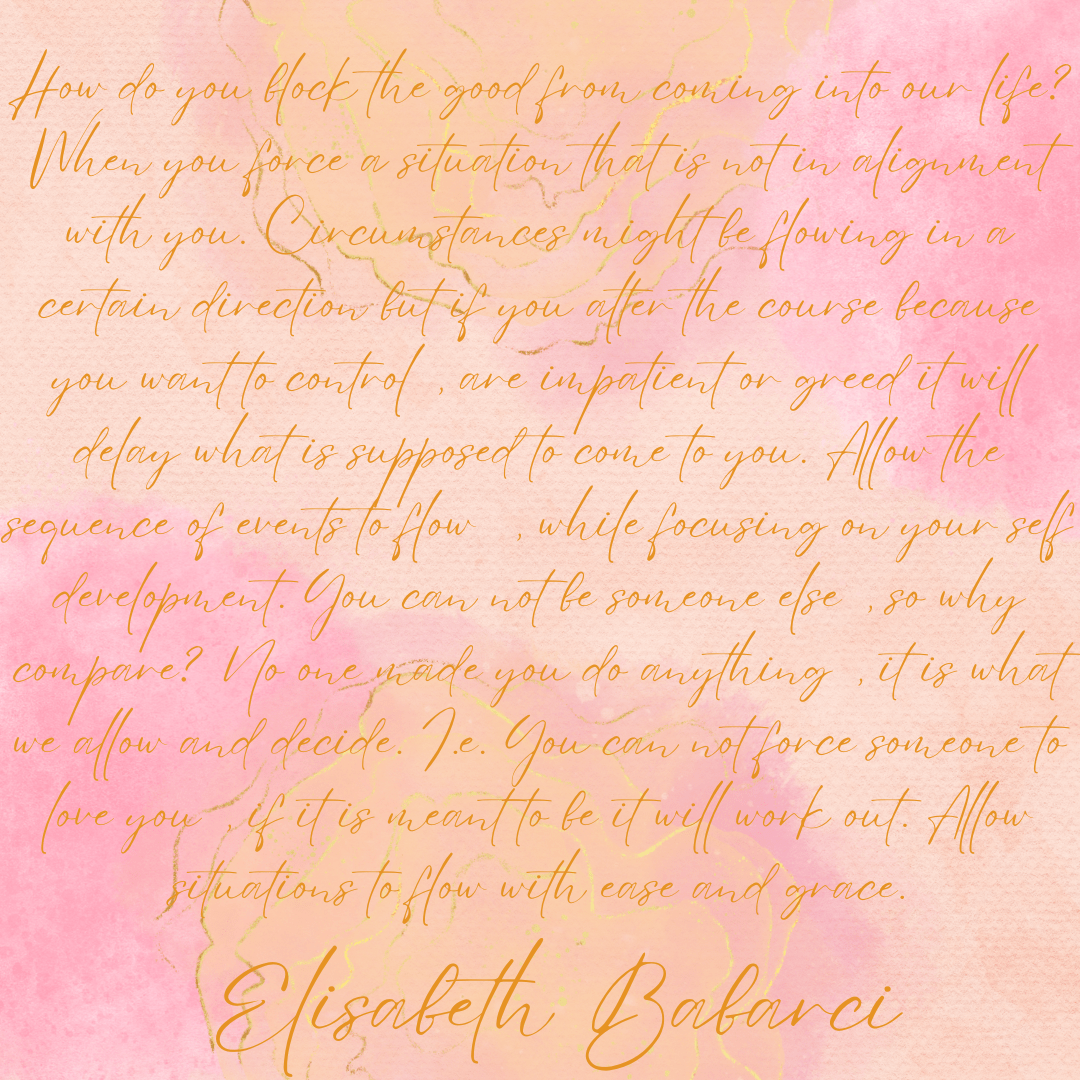 How do you block the good from coming into our life?
When you force a situation that is not in alignment
with you. Circumstances might be flowing in a
certain direction but if you alter the course because
you want to control , are impatient or greed it will
delay what is supposed to come to you. Allow the
sequence of events to flow , while focusing on your self
development. You can not be someone else , so why
compare? No one made you do anything , it is what
we allow and decide. I.e. You can not force someone to
love you , if it is meant to be it will work out. Allow
situations to flow with ease and grace.
Elisabeth Babarci